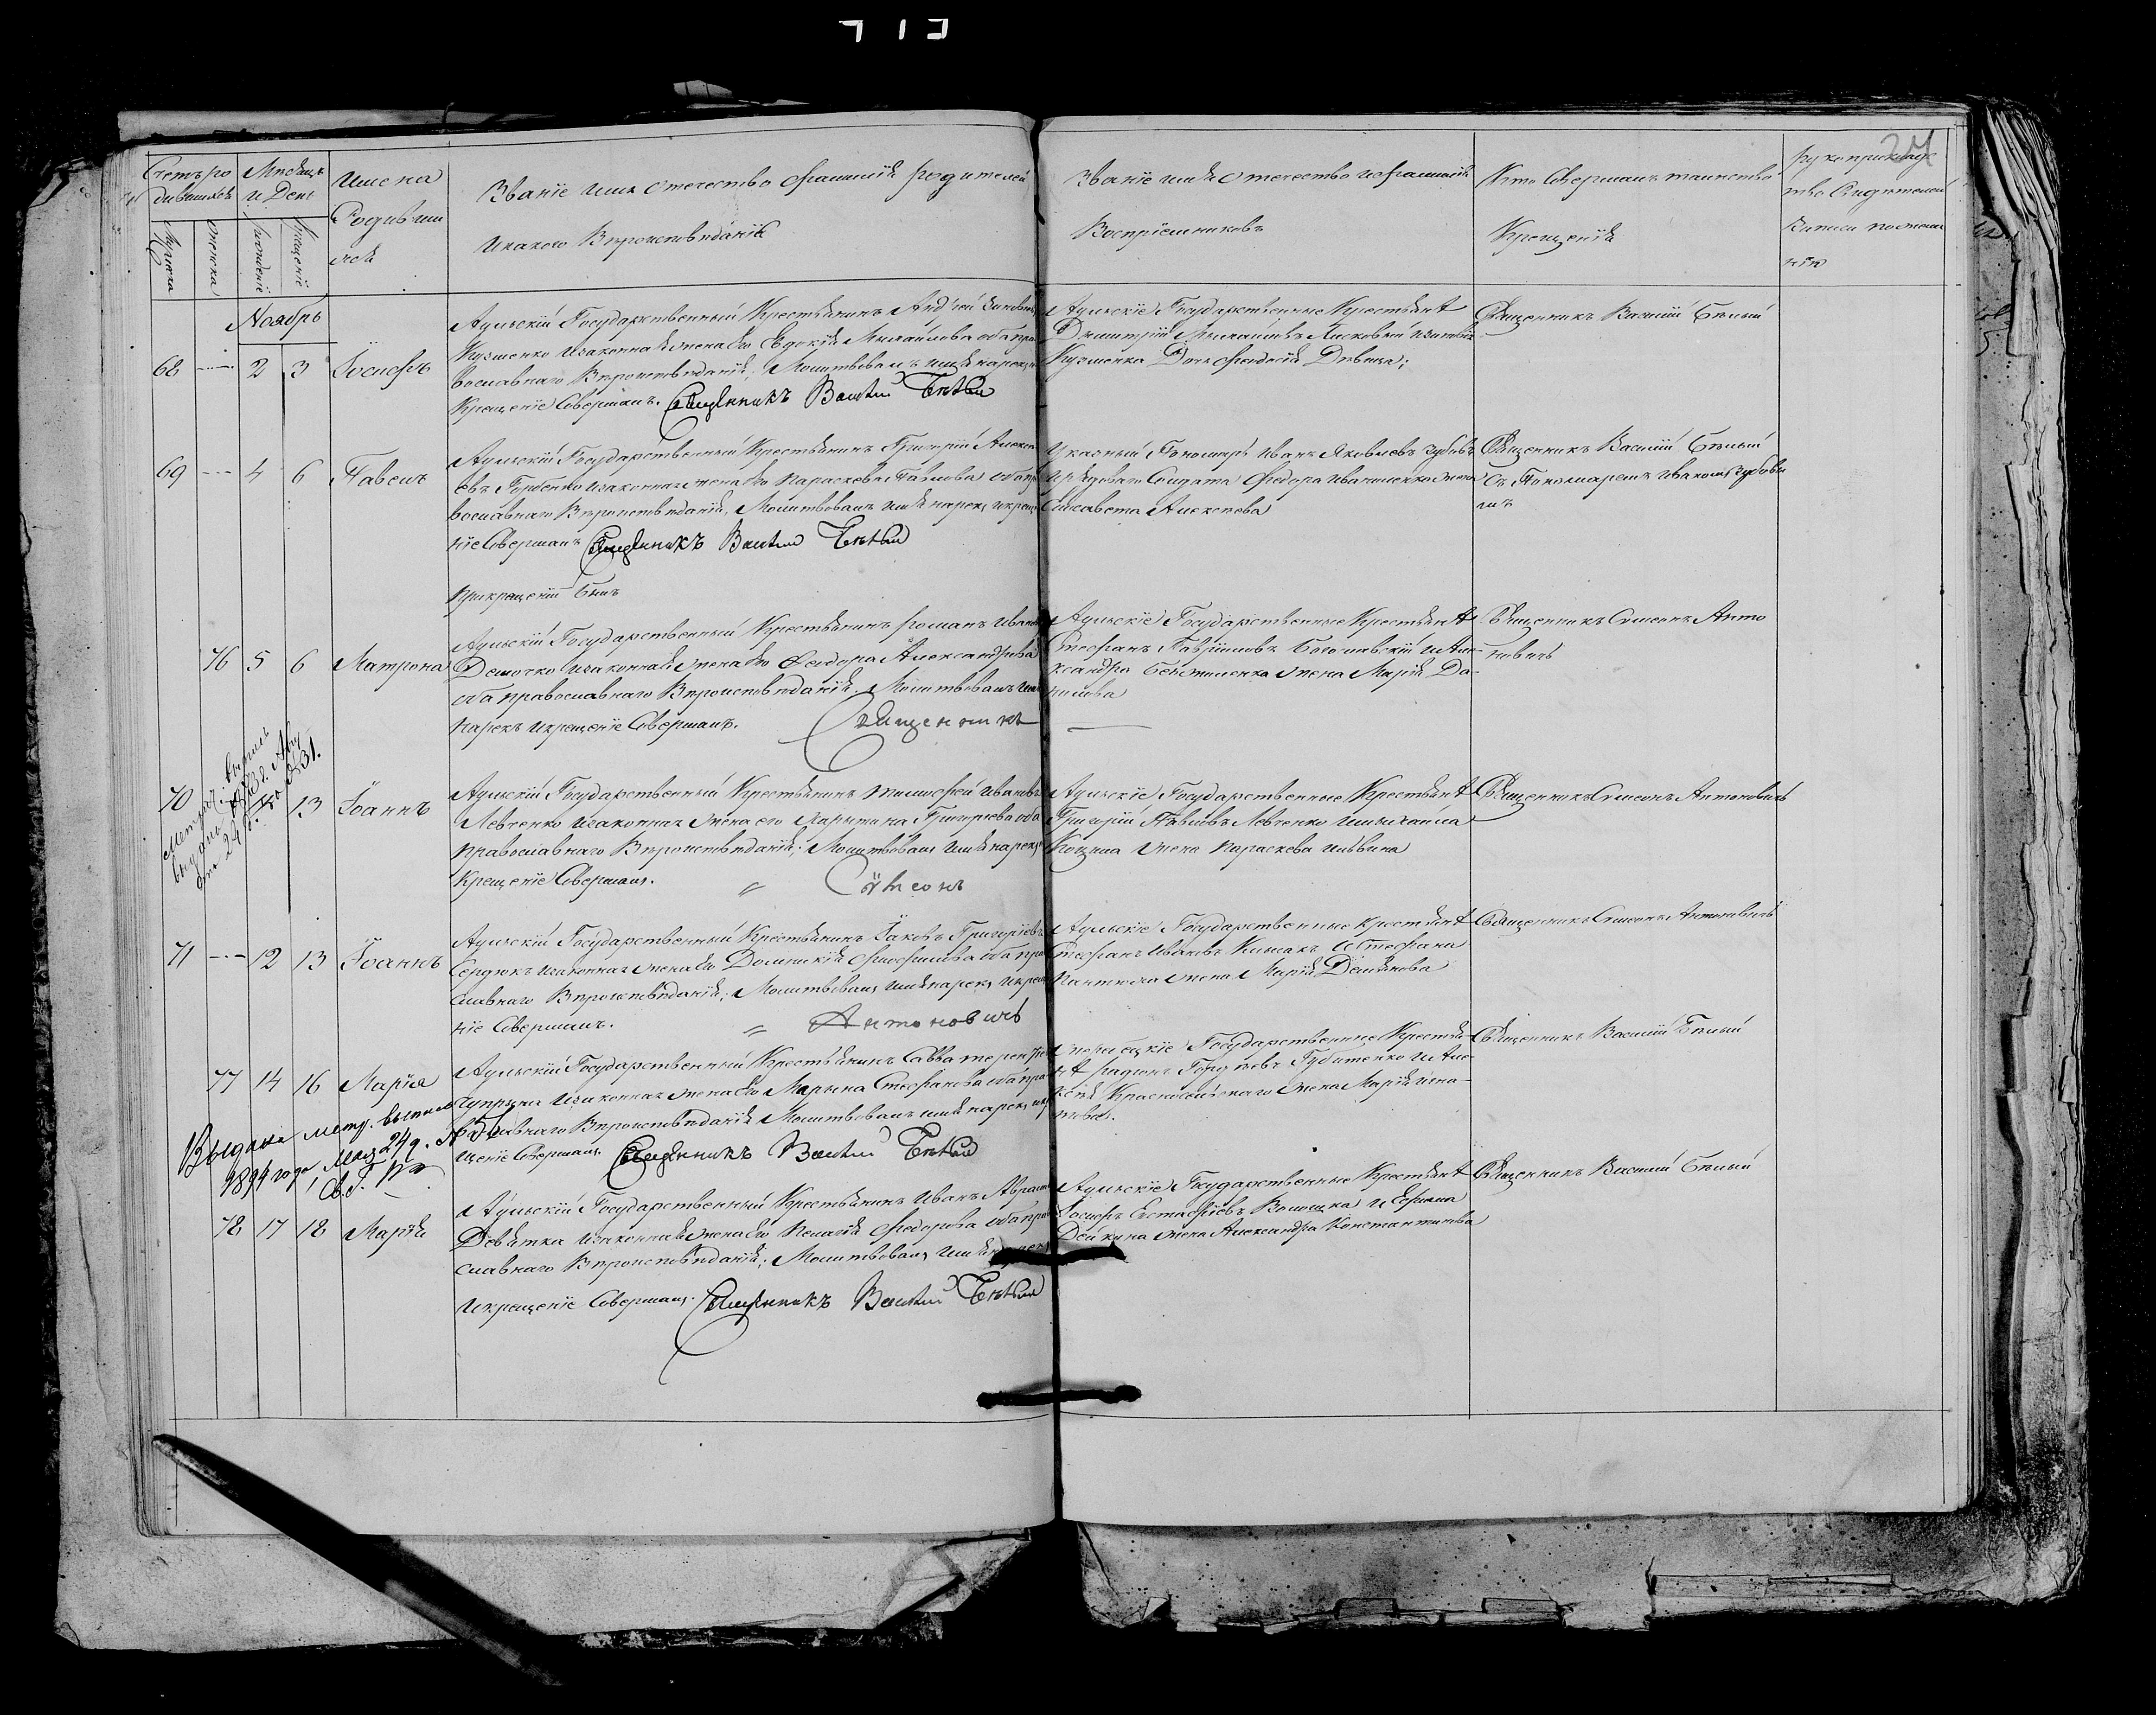 24
Счетъ ро
дившихся
Мѣсяцъ
и День
Имена
Родивши
хся
Званіе имя отечество фамилія родителей
и какого вѣроисповѣданія
Званіе имя отечество и фамилія
Воспріемниковъ
Кто совершалъ таинство
Крещенія
рукоприкладс
тво свидѣтелей
записи по жела
нію
мужеска
женска
рожденіе
крещеніе
Ноябрь
68 2 3 Іосифъ
Аульскій Государственный Крестьянинъ Андрей
Кузменко и законная жена его Евдокія Михайлова оба пра
вославнаго вѣроисповѣданія; Молитвовалъ имя нарекъ и
Крещеніе совершалъ. Священникъ Василій Бѣлый
Аульскіе Государственные Крестьяне
Димитрій Михайловъ
Кузменка Дочь Феодосія Дѣвица;
Священникъ Василій Бѣлый
69 4 6 Павелъ
Аульскій Государственный Крестьянинъ Григорій Алексѣ
евъ Горбенко и законная жена его Параскева Павлова оба пра
вославнаго вѣроисповѣданія, Молитвовалъ имя нарекъ и креще
ніе совершалъ Священникъ Василій Бѣлый
При крещеніи былъ
Указный Пономарь Иванъ Яковлевъ Чубовъ
и рядоваго Солдата Федора Иваненко жена
Елисавета Алексѣева
Священникъ Василій Бѣлый
съ Пономаремъ Иваномъ Чубовы
мъ
76 5 6 Матрона
Аульскій Государственный Крестьянинъ Романъ Ивановъ
Демочко и законная жена его Феодора Александрова
оба православнаго вѣроисповѣданія. Молитвовалъ имя
нарекъ и крещеніе совершалъ. Священникъ
Аульскіе Государственные Крестьяне
Стефанъ Гавріиловъ Богославскій и Але
ксандра жена Марія Да
нилова
Священникъ Симеонъ Анто
новичь
70 13 Іоаннъ
Метрич. выпись
выдана
отъ 24 № 31.
Аульскій Государственный Крестьянинъ Тимофей Ивановъ
Левченко и законная жена его Харытина Григорьева оба
православнаго вѣроисповѣданія; Молитвовалъ имя нарекъ и
Крещеніе совершалъ. Симеонъ
Аульскіе Государственные Крестьяне
Григорій Павловъ Левченко и Михаила
Коцына жена Параскева Ильвина
Священникъ Симеонъ Антоновичь
71 12 13 Іоаннъ
Аульскій Государственный Крестьянинъ Іаковъ Григоріевъ
Сердюкъ и законная жена его Домникія Феофилова оба право
славнаго вѣроисповѣданія; Молитвовалъ имя нарекъ и креще
ніе совершалъ. Антоновичь
Аульскіе Государственные Крестьяне
Стефанъ Ивановъ и Стефана
жена Марія Демьянова
Священникъ Симеонъ Антоновичь
77 14 16 Марія
Выдана метр. выпись
1894 года, Мая 24 д.
Аульскій Государственный Крестьянинъ Савва Терентіевъ
Чупрына и законная жена его Марына Стефанова оба пра
вославнаго вѣроисповѣданія Молитвовалъ имя нарекъ и кре
щеніе совершалъ. Священникъ Василій Бѣлый
Государственные Крестья
не Родіонъ Гордѣевъ Губитенко и Але
ксѣя жена Марія Игна
това.
Священникъ Василій Бѣлый
78 17 18 Марія
Аульскій Государственный Крестьянинъ Иванъ Аврамовъ
Девятка и законная жена его Пелагія Федорова оба право
славнаго вѣроисповѣданія; Молитвовалъ имя нарекъ
и крещеніе совершалъ. Священникъ Василій Бѣлый
Аульскіе Государственные Крестьяне
Іосифъ Евстафіевъ Волошка и Ефима
Дейкина жена Александра Константинова
Священникъ Василій Бѣлый